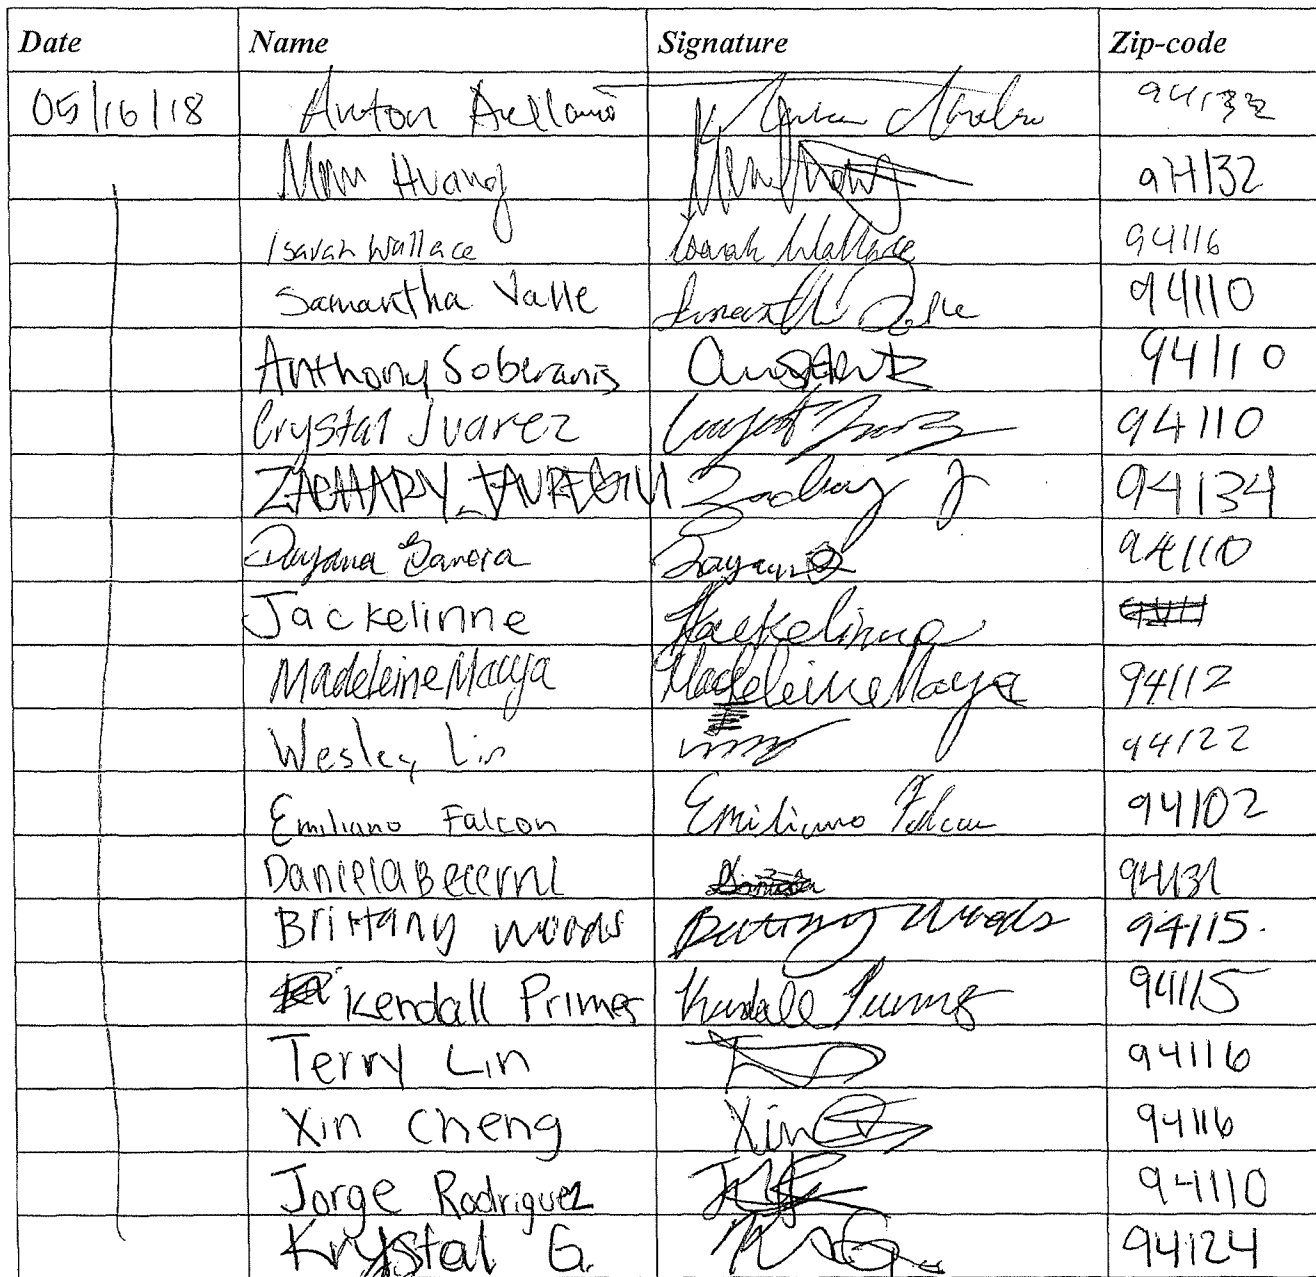 Date Name Signature Zip-code
05/16/18 Anton Arellano 94132
Huang 94132
Isarah Wallace Isarah Wallace 94116
Samantha Valle Samantha Valle 94110
Anthony Soberanis 94110
Crystal Juarez Crystal Juarez 94110
ZACHARY JAUREGUI Zachary J 94134
Dayana Dayana 94110
Jackelinne Jackelinne
Madeleine Maya Madeleine Maya 94112
Wesley Lin 94122
Emiliano Falcon Emiliano Falcon 94102
Daniela Becerril 94131
Brittany Woods Brittany Woods 94115.
Kendall Primes Kendall Primes 94115
Terry Lin 94116
Xin Cheng Xin 94116
Jorge Rodriguez 94110
Krystal G. 94124